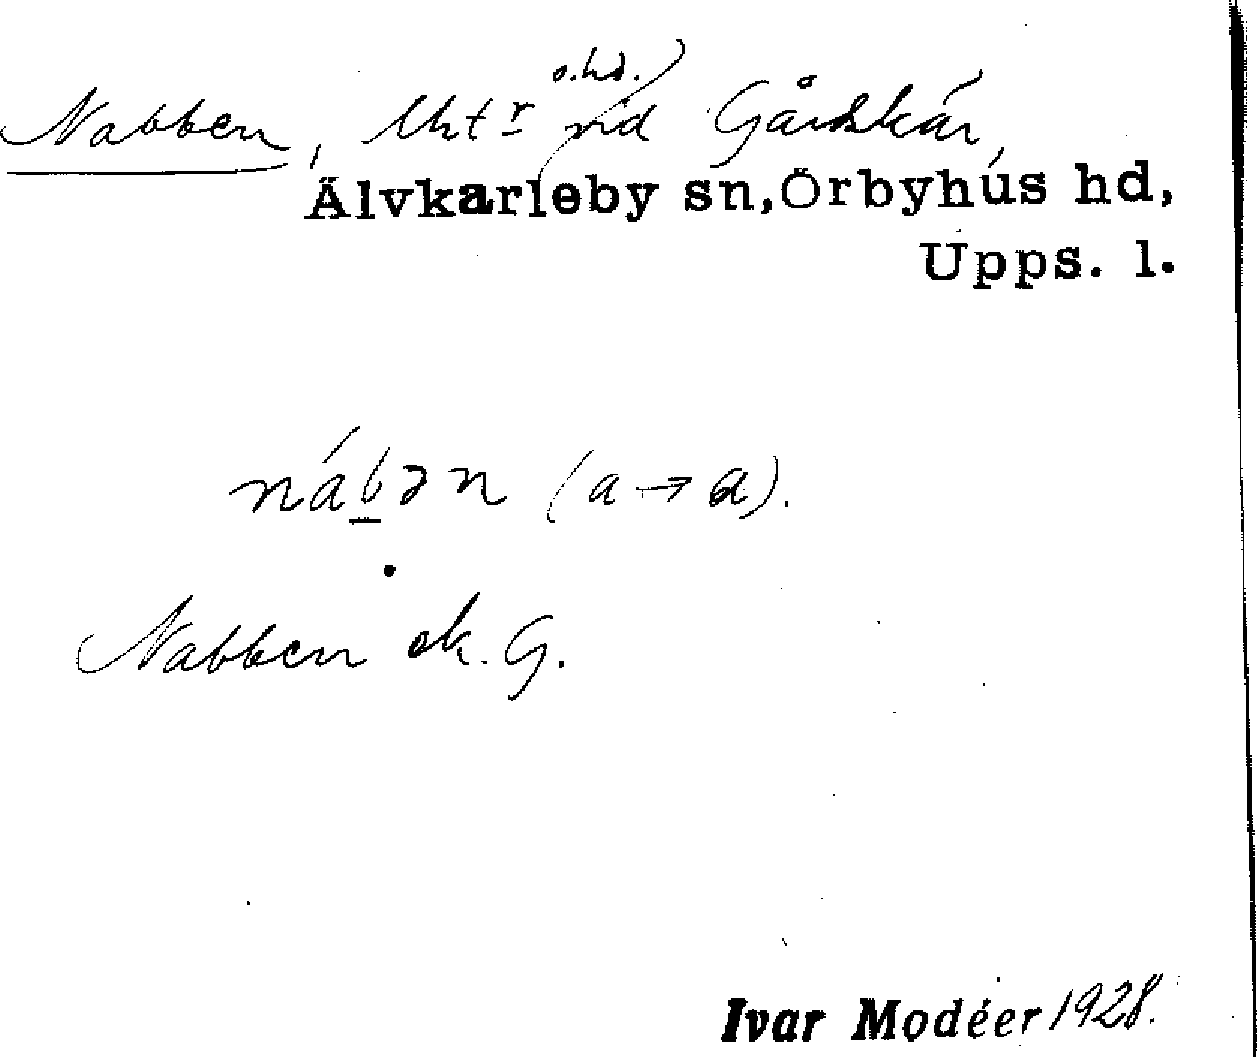 o.hd.)
Nabben, vid Gårdskär,
Älvkarleby sn, Örbyhus hd,
Upps. l.
nábən (a → ɑ).
Nabben ek. G.
Ivar Modéer 1928.